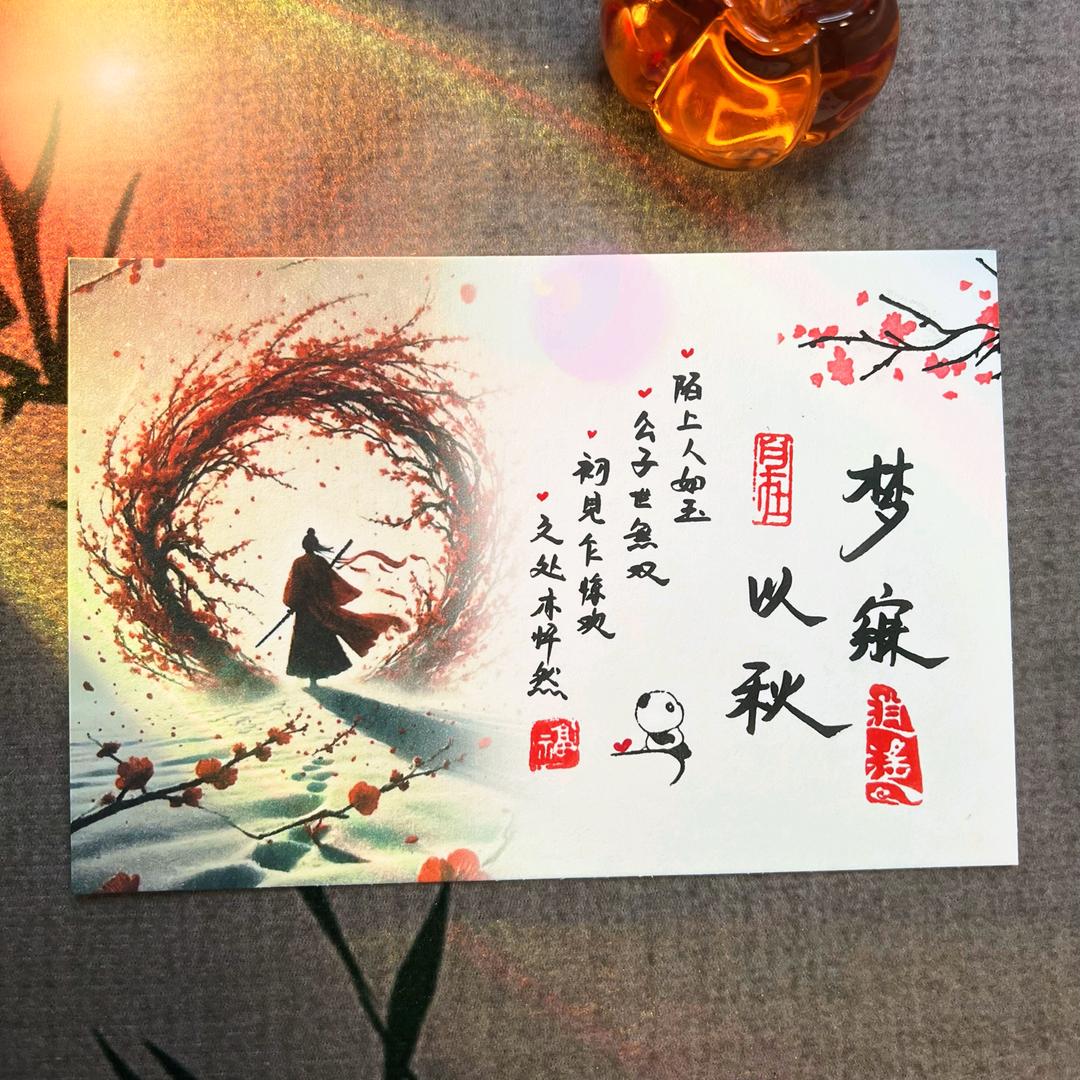 梦寐
逍遥
自在
以秋
陌上人如玉
公子世無双
初見乍惊欢
久处亦怦然